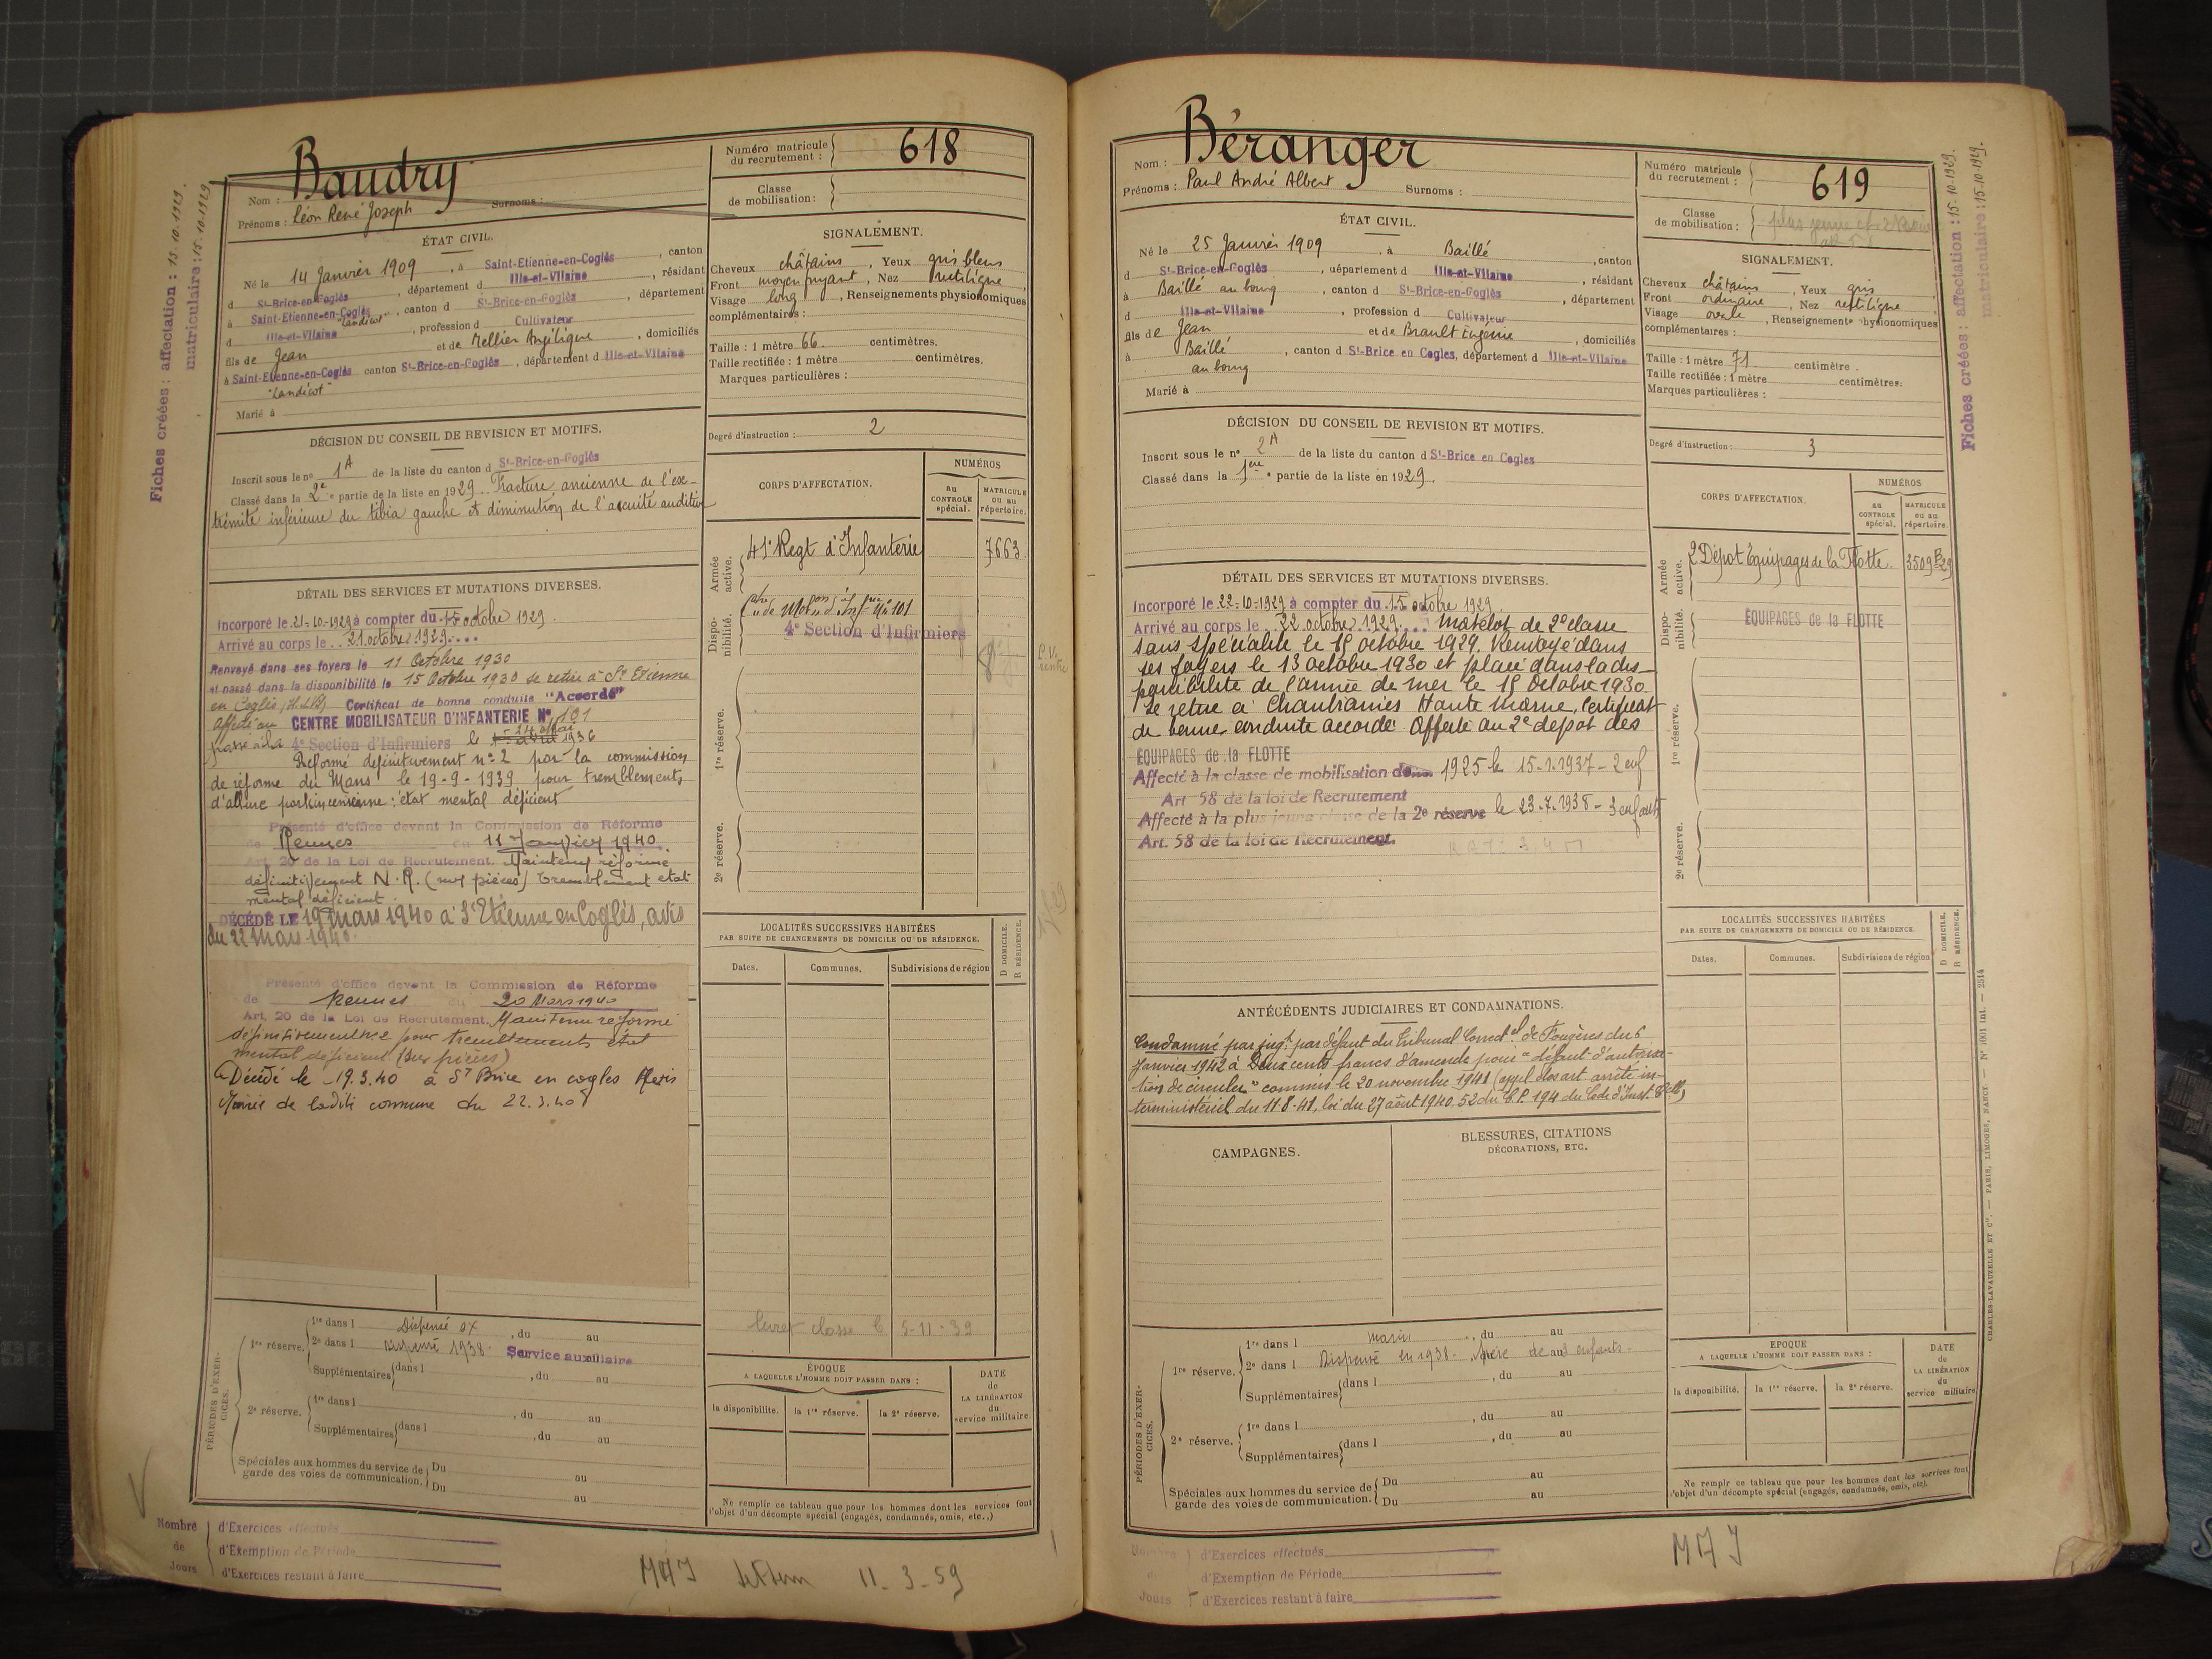 Fiches créées : affectation : 15.10.1929.
matriculaire : 15.10.1929
Nom : Baudry
Prénoms : Léon René Joseph Surnoms :
Numéro matricule du recrutement : 618
Classe de mobilisation :
ÉTAT CIVIL.
Né le 14 Janvier 1909, à Saint-Etienne-en-Coglès, canton
d St-Brice-en-Coglès, département d Ille-et-Vilaine, résidant
à Saint-Etienne-en-Coglès "Landécot", canton d St-Brice-en-Coglès, département
d Ille-et-Vilaine, profession d Cultivateur
fils de Jean et de Tellier Angélique, domiciliés
à Saint-Etienne-en-Coglès canton St-Brice-en-Coglès, département d Ille-et-Vilaine
"Landécot"
Marié à
SIGNALEMENT.
Cheveux châtains, Yeux gris bleus
Front moyen fuyant, Nez rectiligne,
Visage long, Renseignements physionomiques
complémentaires :
Taille : 1 mètre 66. centimètres.
Taille rectifiée : 1 mètre centimètres.
Marques particulières :
Degré d'instruction : 2
DÉCISION DU CONSEIL DE REVISION ET MOTIFS.
Inscrit sous le n° 1A de la liste du canton d St-Brice-en-Coglès
Classé dans la 2e partie de la liste en 1929. Fracture ancienne de l'ex-
trémité inférieure du tibia gauche et diminution de l'acuité auditive
DÉTAIL DES SERVICES ET MUTATIONS DIVERSES.
Incorporé le 21-10-1929 à compter du 15 octobre 1929.
Arrivé au corps le 21 octobre 1929....
Renvoyé dans ses foyers le 11 Octobre 1930
et passé dans la disponibilité le 15 Octobre 1930 se retire à St Etienne
en Coglès Certificat de bonne conduite "Accordé"
Affecté au CENTRE MOBILISATEUR D'INFANTERIE N° 101
passé à la 4e Section d'Infirmiers le 24 Mai 1936
Réformé définitivement n° 2 par la commission
de réforme du Mans le 19-9-1939 pour tremblements
d'allure parkinsonienne : état mental déficient
Présenté d'office devant la Commission de Réforme
de Rennes du 11 Janvier 1940.
Art. 20 de la Loi de Recrutement. Maintenu réforme
définitivement N.R. (sur pièces) tremblement etat
mental déficient.
DÉCÉDÉ LE 19 mars 1940 à St Etienne en Coglès, avis
du 22 Mars 1940.
Présenté d'office devant la Commission de Réforme
de Rennes du 20 Mars 1940
Art. 20 de la Loi de Recrutement. Maintenu réformé
définitivement n° 2 pour tremblements état
mental déficient (sur pièces)
Décédé le 19.3.40 à St Brice en cogles Avis
Mairie de ladite commune du 22.3.40
CORPS D'AFFECTATION.
NUMÉROS
au CONTROLE spécial.
MATRICULE ou au répertoire.
Armée active.
41e Regt d'Infanterie 7663
Disponibilité.
4e Section d'Infirmiers
1re réserve.
2e réserve.
LOCALITÉS SUCCESSIVES HABITÉES
PAR SUITE DE CHANGEMENTS DE DOMICILE OU DE RÉSIDENCE.
Dates. Communes. Subdivisions de région
D DOMICILE. R RÉSIDENCE.
livret classé le 5-11-39
PÉRIODES D'EXERCICES.
1re réserve. 1re dans l Dispensé, du au
2e dans l Dispensé 1938. Service auxiliaire
Supplémentaires dans l, du au
2e réserve. 1re dans l, du au
Supplémentaires dans l, du au
Spéciales aux hommes du service de garde des voies de communication. Du au
Du au
ÉPOQUE
A LAQUELLE L'HOMME DOIT PASSER DANS :
la disponibilité. la 1re réserve. la 2e réserve.
DATE de LA LIBÉRATION du service militaire
Ne remplir ce tableau que pour les hommes dont les services font
l'objet d'un décompte spécial (engagés, condamnés, omis, etc.,)
Nombre de Jours
d'Exercices effectués
d'Exemption de Période
d'Exercices restant à faire
11-3-59
Nom : Béranger
Prénoms : Paul André Albert Surnoms :
Numéro matricule du recrutement : 619
Classe de mobilisation :
Fiches créées : affectation : 15.10.1929.
matriculaire : 15.10.1929.
ÉTAT CIVIL.
Né le 25 Janvier 1909, à Baillé, canton
d St-Brice-en-Coglès, département d Ille-et-Vilaine, résidant
à Baillé au bourg, canton d St-Brice-en-Coglès, département
d Ille-et-Vilaine, profession d Cultivateur
fils de Jean et de Brault Eugénie, domiciliés
à Baillé, canton d St-Brice en Cogles, département d Ille-et-Vilaine
au bourg
Marié à
SIGNALEMENT.
Cheveux châtains, Yeux gris
Front ordinaire, Nez rectiligne
Visage ovale, Renseignements physionomiques
complémentaires :
Taille : 1 mètre 71 centimètre.
Taille rectifiée : 1 mètre centimètres.
Marques particulières :
Degré d'instruction : 3
DÉCISION DU CONSEIL DE REVISION ET MOTIFS.
Inscrit sous le n° 2A de la liste du canton d St-Brice en Cogles
Classé dans la 1ère partie de la liste en 1929.
DÉTAIL DES SERVICES ET MUTATIONS DIVERSES.
Incorporé le 22-10-1929 à compter du 15 octobre 1929.
Arrivé au corps le 22 octobre 1929.... matelot de 2e classe
sans spécialité le 15 octobre 1929. Renvoyé dans
ses foyers le 13 octobre 1930 et placé dans la dis-
ponibilité de l'armée de mer le 15 octobre 1930.
Se retire à Chantraines Haute Marne, Certificat
de bonne conduite accordé. Affecté au 2e dépot des
ÉQUIPAGES de la FLOTTE
Affecté à la classe de mobilisation de 1925 le 15-1-1937 - 2 enf
Art 58 de la loi de Recrutement
Affecté à la plus jeune classe de la 2e réserve le 23.7.1938 - 3 enfants
Art. 58 de la loi de Recrutement.
CORPS D'AFFECTATION.
NUMÉROS
au CONTROLE spécial.
MATRICULE ou au répertoire.
Armée active.
2 Dépot Equipages de la Flotte. 3509 B 29
Disponibilité.
ÉQUIPAGES de la FLOTTE
1re réserve.
2e réserve.
ANTÉCÉDENTS JUDICIAIRES ET CONDAMNATIONS.
Condamné par jugt par défaut du Tribunal Correctel de Fougères du 6
Janvier 1942 à Deux cents francs d'amende pour "défaut d'autorisa-
tion de circuler" commis le 20 novembre 1941 (appl. des art. arrêté in-
terministériel du 11-8-41, loi du 27 août 1940, 52 du C.P. 194 du Code d'Inst. Celle)
CAMPAGNES.
BLESSURES, CITATIONS
DÉCORATIONS, ETC.
LOCALITÉS SUCCESSIVES HABITÉES
PAR SUITE DE CHANGEMENTS DE DOMICILE OU DE RÉSIDENCE.
Dates. Communes. Subdivisions de région
D DOMICILE. R RÉSIDENCE.
PÉRIODES D'EXERCICES.
1re réserve. 1re dans l Marin, du au
2e dans l Dispensé en 1938. Père de 3 enfants.
Supplémentaires dans l, du au
2e réserve. 1re dans l, du au
Supplémentaires dans l, du au
Spéciales aux hommes du service de garde des voies de communication. Du au
Du au
EPOQUE
A LAQUELLE L'HOMME DOIT PASSER DANS :
la disponibilité. la 1re réserve. la 2e réserve.
DATE de LA LIBÉRATION du service militaire
Ne remplir ce tableau que pour les hommes dont les services font
l'objet d'un décompte spécial (engagés, condamnés, omis, etc).
CHARLES-LAVAUZELLE ET Cie. — PARIS, LIMOGES, NANCY. — N° 1001 int. — 2514
Nombre de Jours
d'Exercices effectués
d'Exemption de Période
d'Exercices restant à faire